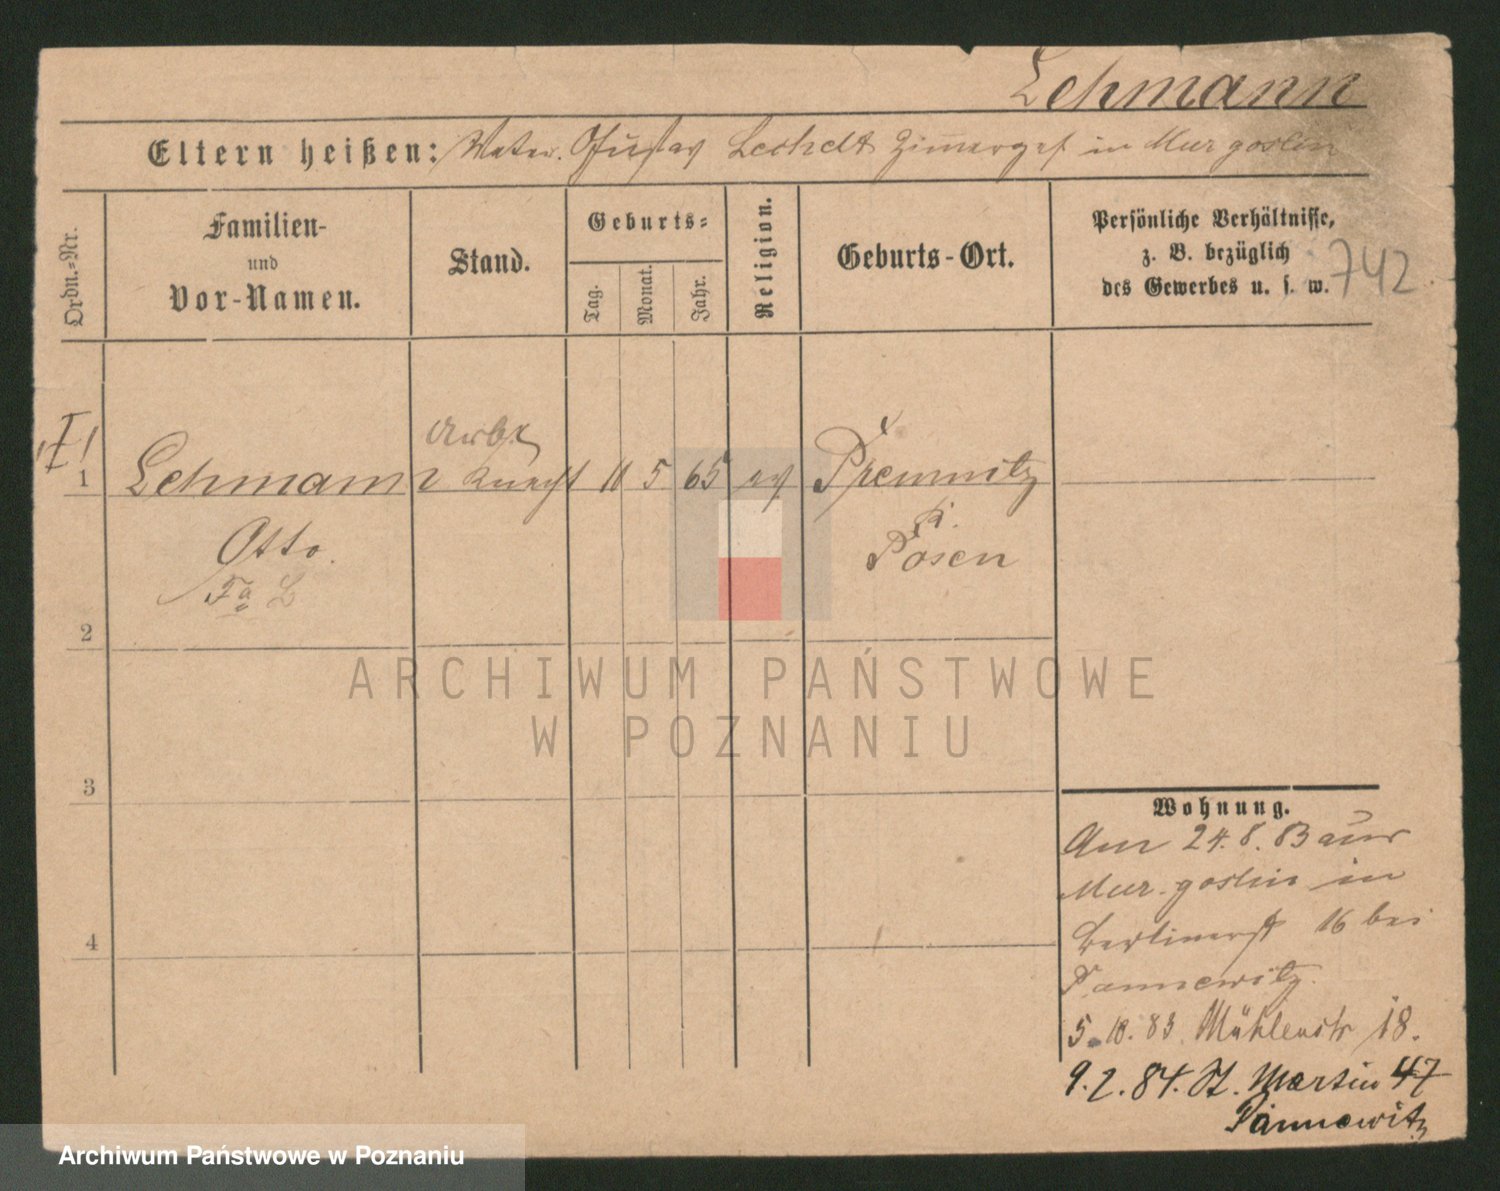 Lehmann
Eltern heißen: Vater. Gustav Zimerges in Mur goslin
Ordn.-Nr.
Familien-
und
Vor-Namen.
Stand.
Geburts-
Tag.
Monat.
Jahr.
Religion.
Geburts-Ort.
Persönliche Verhältnisse,
z. B. bezüglich
des Gewerbes u. s. w.
742
I
Arbt
1 Lehmann Knecht 11 5 65 ev
Otto.
K.
Posen
Fa L
2
3
4
ARCHIWUM PAŃSTWOWE
W POZNANIU
Wohnung.
Am 24.8.83 aus
Mur. goslin in
Berlinerst 16 bei
Pannewitz.
5.10.83. Mühlenstr 18.
9.2.84. St. Martin 47
Pannewitz
Archiwum Państwowe w Poznaniu